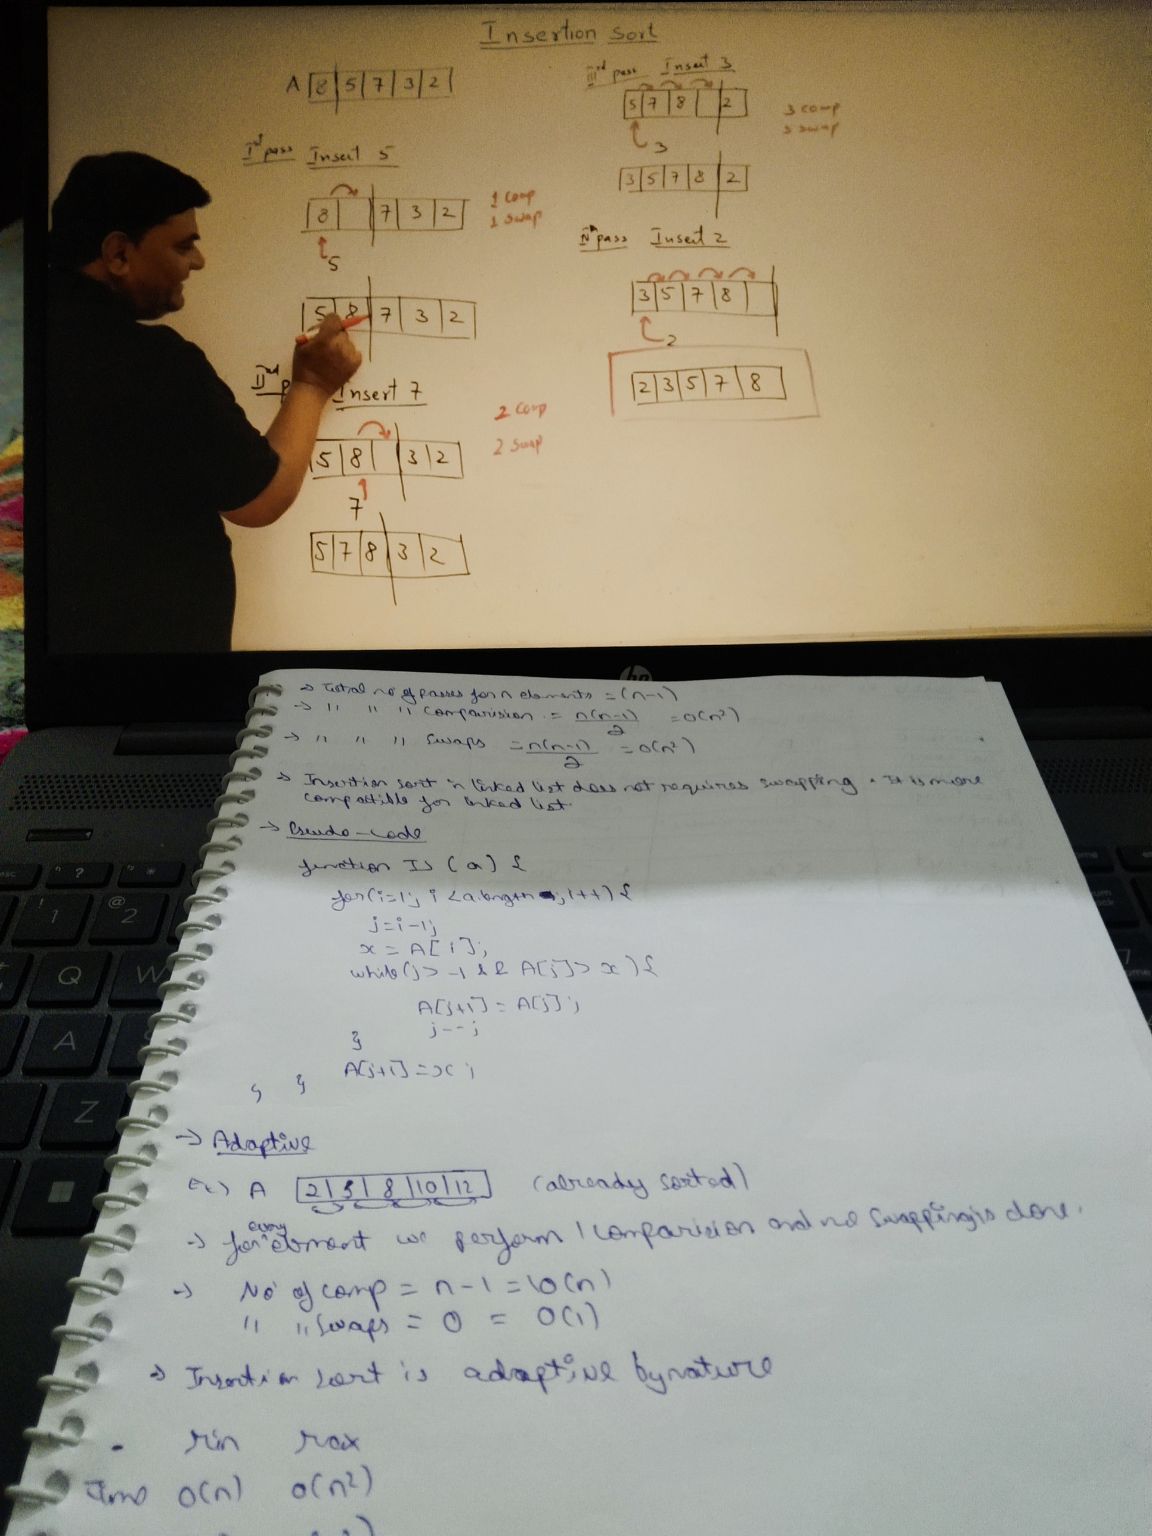 Insertion Sort
A 8 5 7 3 2
Ist pass Insert 5
8 7 3 2
5
1 comp
1 swap
5 8 7 3 2
IInd Insert 7
5 8 3 2
7
2 comp
2 swap
5 7 8 3 2
IIIrd pass Insert 3
5 7 8 2
3
3 comp
3 swap
3 5 7 8 2
pass Insert 2
3 5 7 8
2
2 3 5 7 8
hp
→ Total no of passes for n elements = (n-1)
→ " " " comparision = n(n-1)/2 = O(n²)
→ " " " swaps = n(n-1)/2 = O(n²)
→ Insertion sort in linked list does not requires swapping. It is more
compactible for linked list.
→ Pseudo-code
function IS (a) {
for(i=1; i < a.length ; i++) {
j=i-1;
x = A[i];
while(j > -1 && A[j] > x) {
A[j+1] = A[j];
j--;
}
A[j+1] = x;
} }
→ Adaptive
Ex) A 2 5 8 10 12 (already sorted)
→ for every element we perform 1 comparision and no swapping is done.
→ No of comp = n-1 = O(n)
" " swaps = 0 = O(1)
→ Insertion sort is adaptive by nature
min max
Time O(n) O(n²)
? *
! 1 @ 2
Q W
A
Z